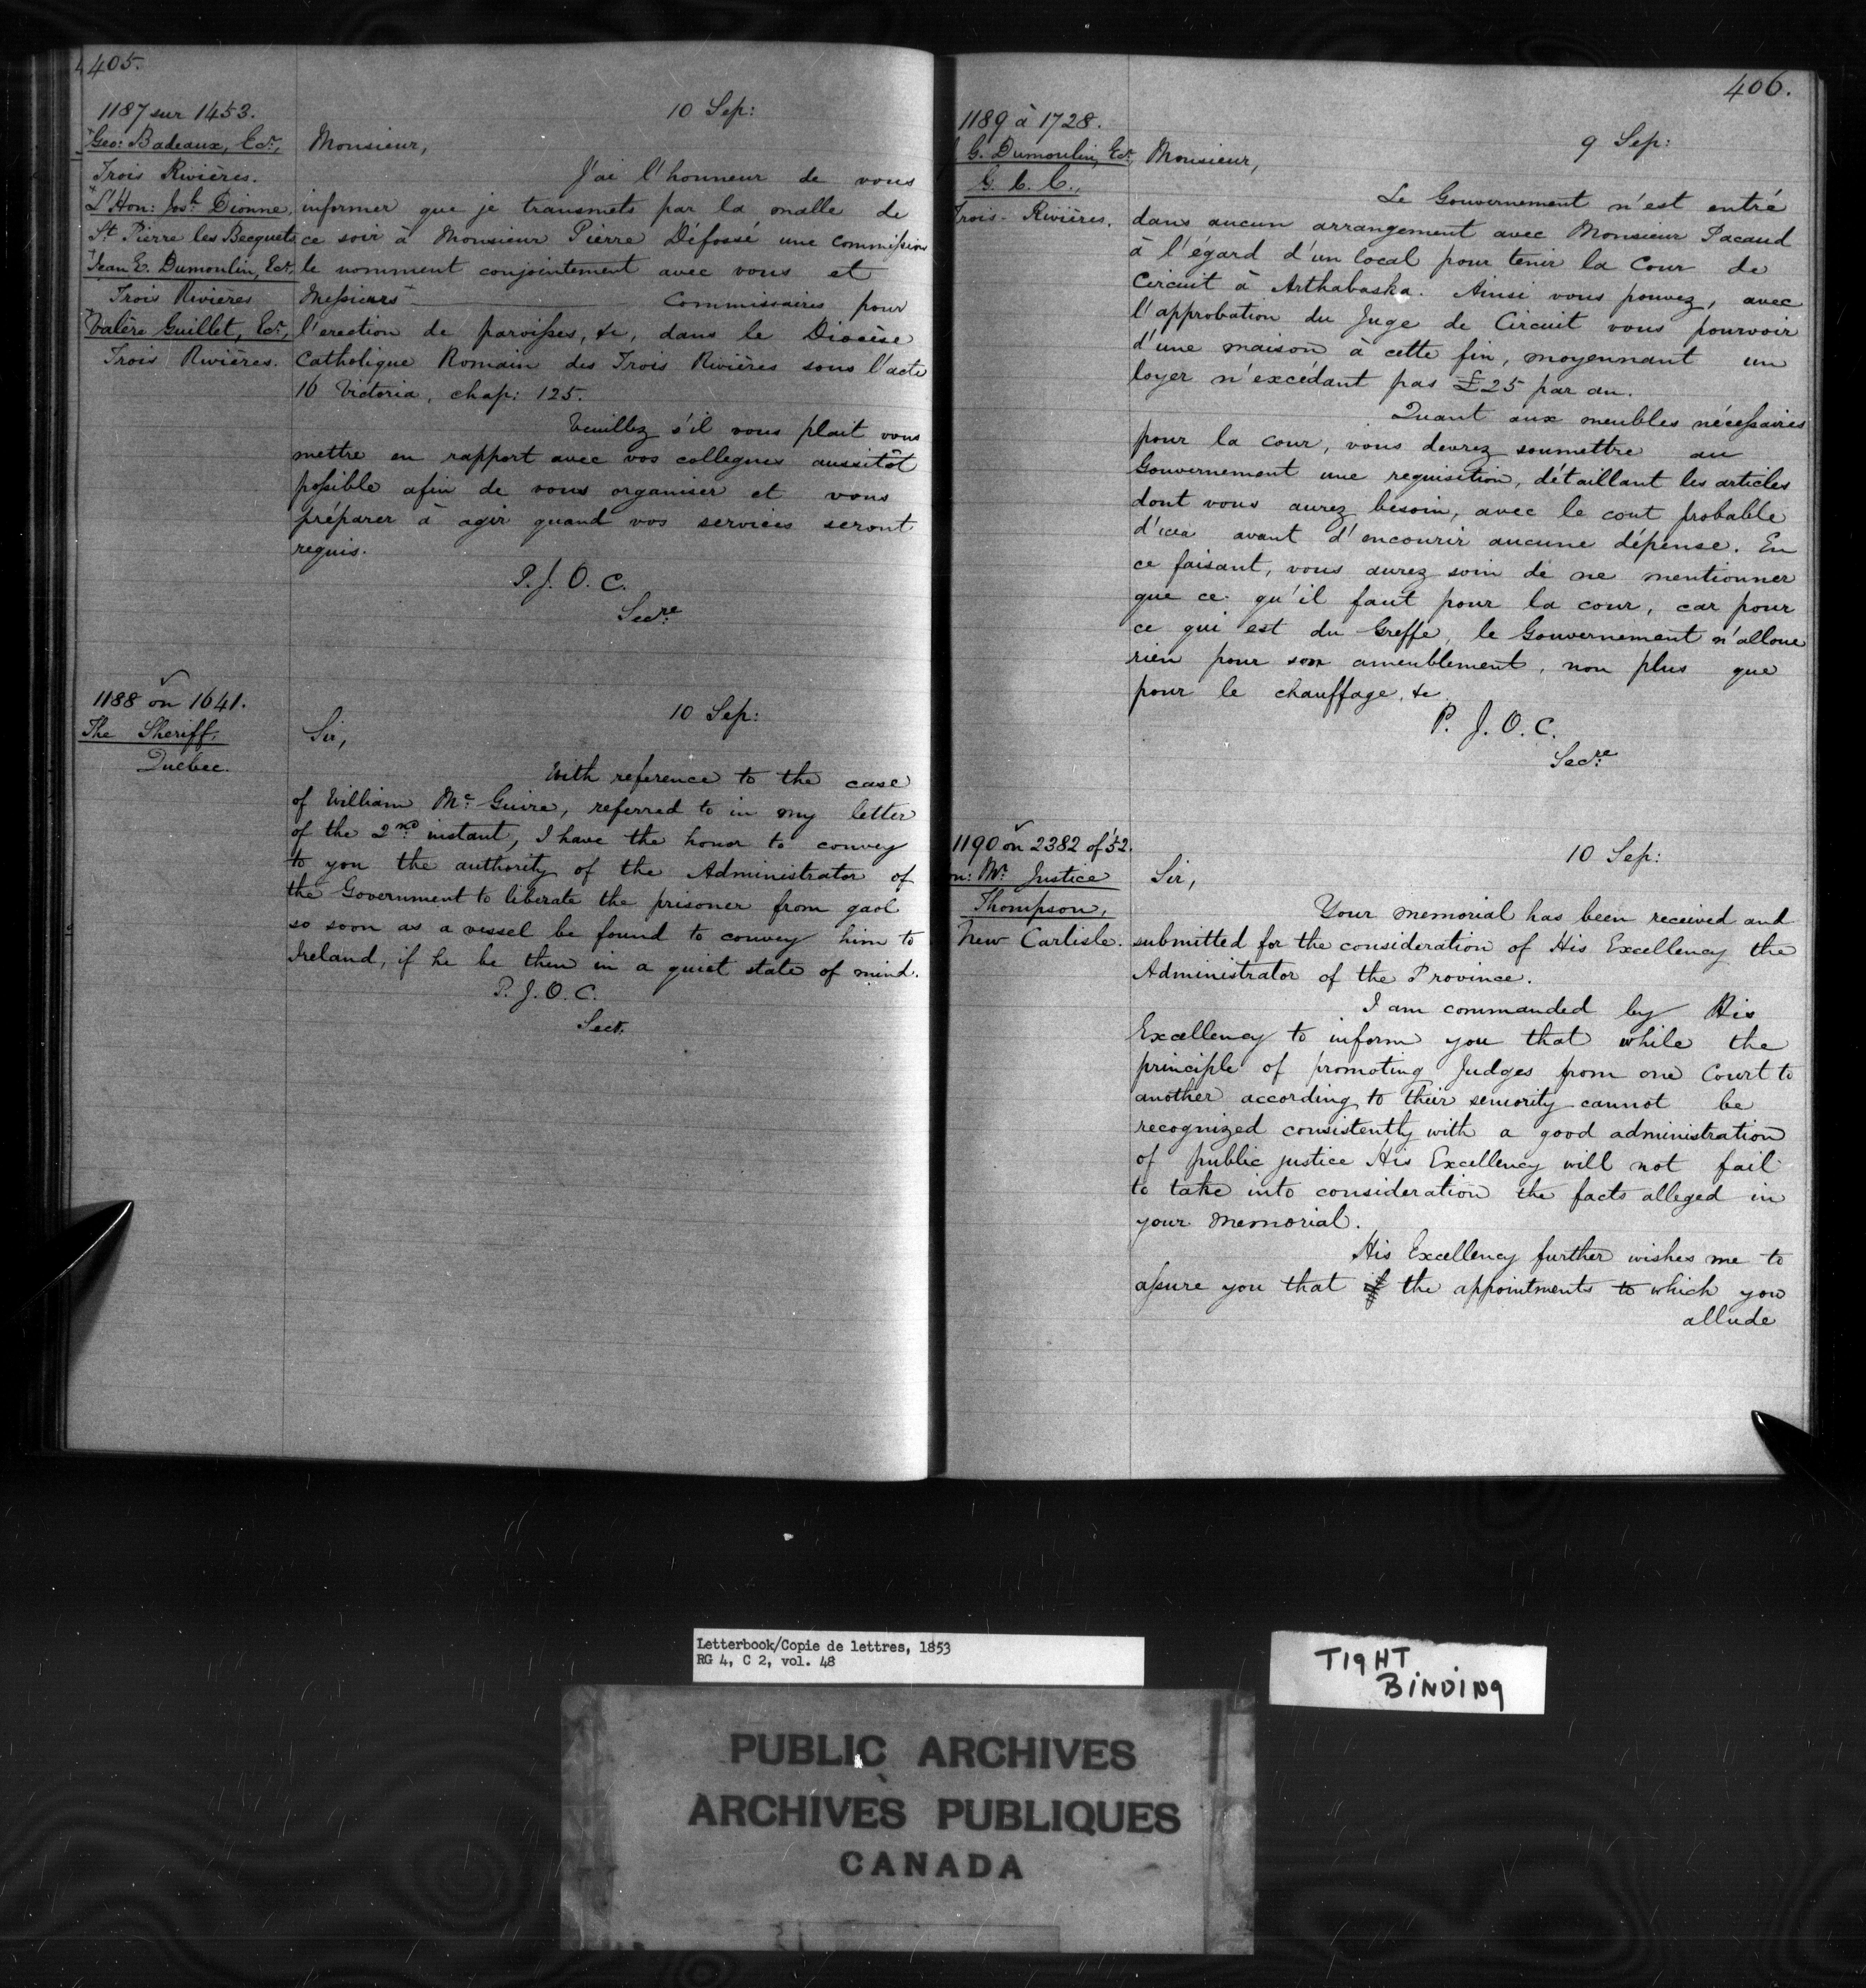 405.
1187 sur 1453.
Geo: Badeaux, Ecr,
Trois Rivières.
L'Hon: Josh Dionne,
St Pierre les Becquets
Jean E. Dumoulin, Ecr,
Trois Rivières
Valère Guillet, Ecr,
Trois Rivières.
10 Sep:
Monsieur,
J'ai l'honneur de vous
informer que je transmets par la malle de
ce soir à Monsieur Pierre Défossé une commission
le nommant conjointement avec vous et
Messieurs — Commissaires pour
l'erection de paroisses, &c, dans le Diocèse
Catholique Romain des Trois Rivières sous l'acte
16 Victoria, chap: 125.
Veuillez s'il vous plait vous
mettre en rapport avec vos collegues aussitôt
possible afin de vous organiser et vous
préparer à agir quand vos services seront
requis.
P. J. O. C.
Secre
1188 on 1641.
The Sheriff,
Quebec.
10 Sep:
Sir,
With reference to the case
of William Mc Guire, referred to in my letter
of the 2nd instant, I have the honor to convey
to you the authority of the Administrator of
the Government to liberate the prisoner from gaol
so soon as a vessel be found to convey him to
Ireland, if he be then in a quiet state of mind.
P. J. O. C.
Sect.
406.
1189 à 1728.
G. Dumoulin, Ecr,
G. C. C.,
Trois-Rivières.
9 Sep:
Monsieur,
Le Gouvernement n'est entré
dans aucun arrangement avec Monsieur Pacaud
à l'égard d'un local pour tenir la Cour de
Circuit à Arthabaska. Ainsi vous pouvez, avec
l'approbation du Juge de Circuit vous pourvoir
d'une maison à cette fin, moyennant un
loyer n'excédant pas £25 par an.
Quant aux meubles nécessaires
pour la cour, vous devrez soumettre au
Gouvernement une requisition, détaillant les articles
dont vous aurez besoin, avec le cout probable
d'iceux avant d'encourir aucune dépense. En
ce faisant, vous aurez soin de ne mentionner
que ce qu'il faut pour la cour, car pour
ce qui est du Greffe, le Gouvernement n'alloue
rien pour son ameublement, non plus que
pour le chauffage, &c
P. J. O. C.
Secre
1190 on 2382 of '52.
on: Mr Justice
Thompson,
New Carlisle.
10 Sep:
Sir,
Your memorial has been received and
submitted for the consideration of His Excellency the
Administrator of the Province.
I am commanded by His
Excellency to inform you that while the
principle of promoting Judges from one Court to
another according to their seniority cannot be
recognized consistently with a good administration
of public justice His Excellency will not fail
to take into consideration the facts alleged in
your memorial.
His Excellency further wishes me to
assure you that if the appointments to which you
allude
Letterbook/Copie de lettres, 1853
RG 4, C 2, vol. 48
TIGHT
BINDING
PUBLIC ARCHIVES
ARCHIVES PUBLIQUES
CANADA